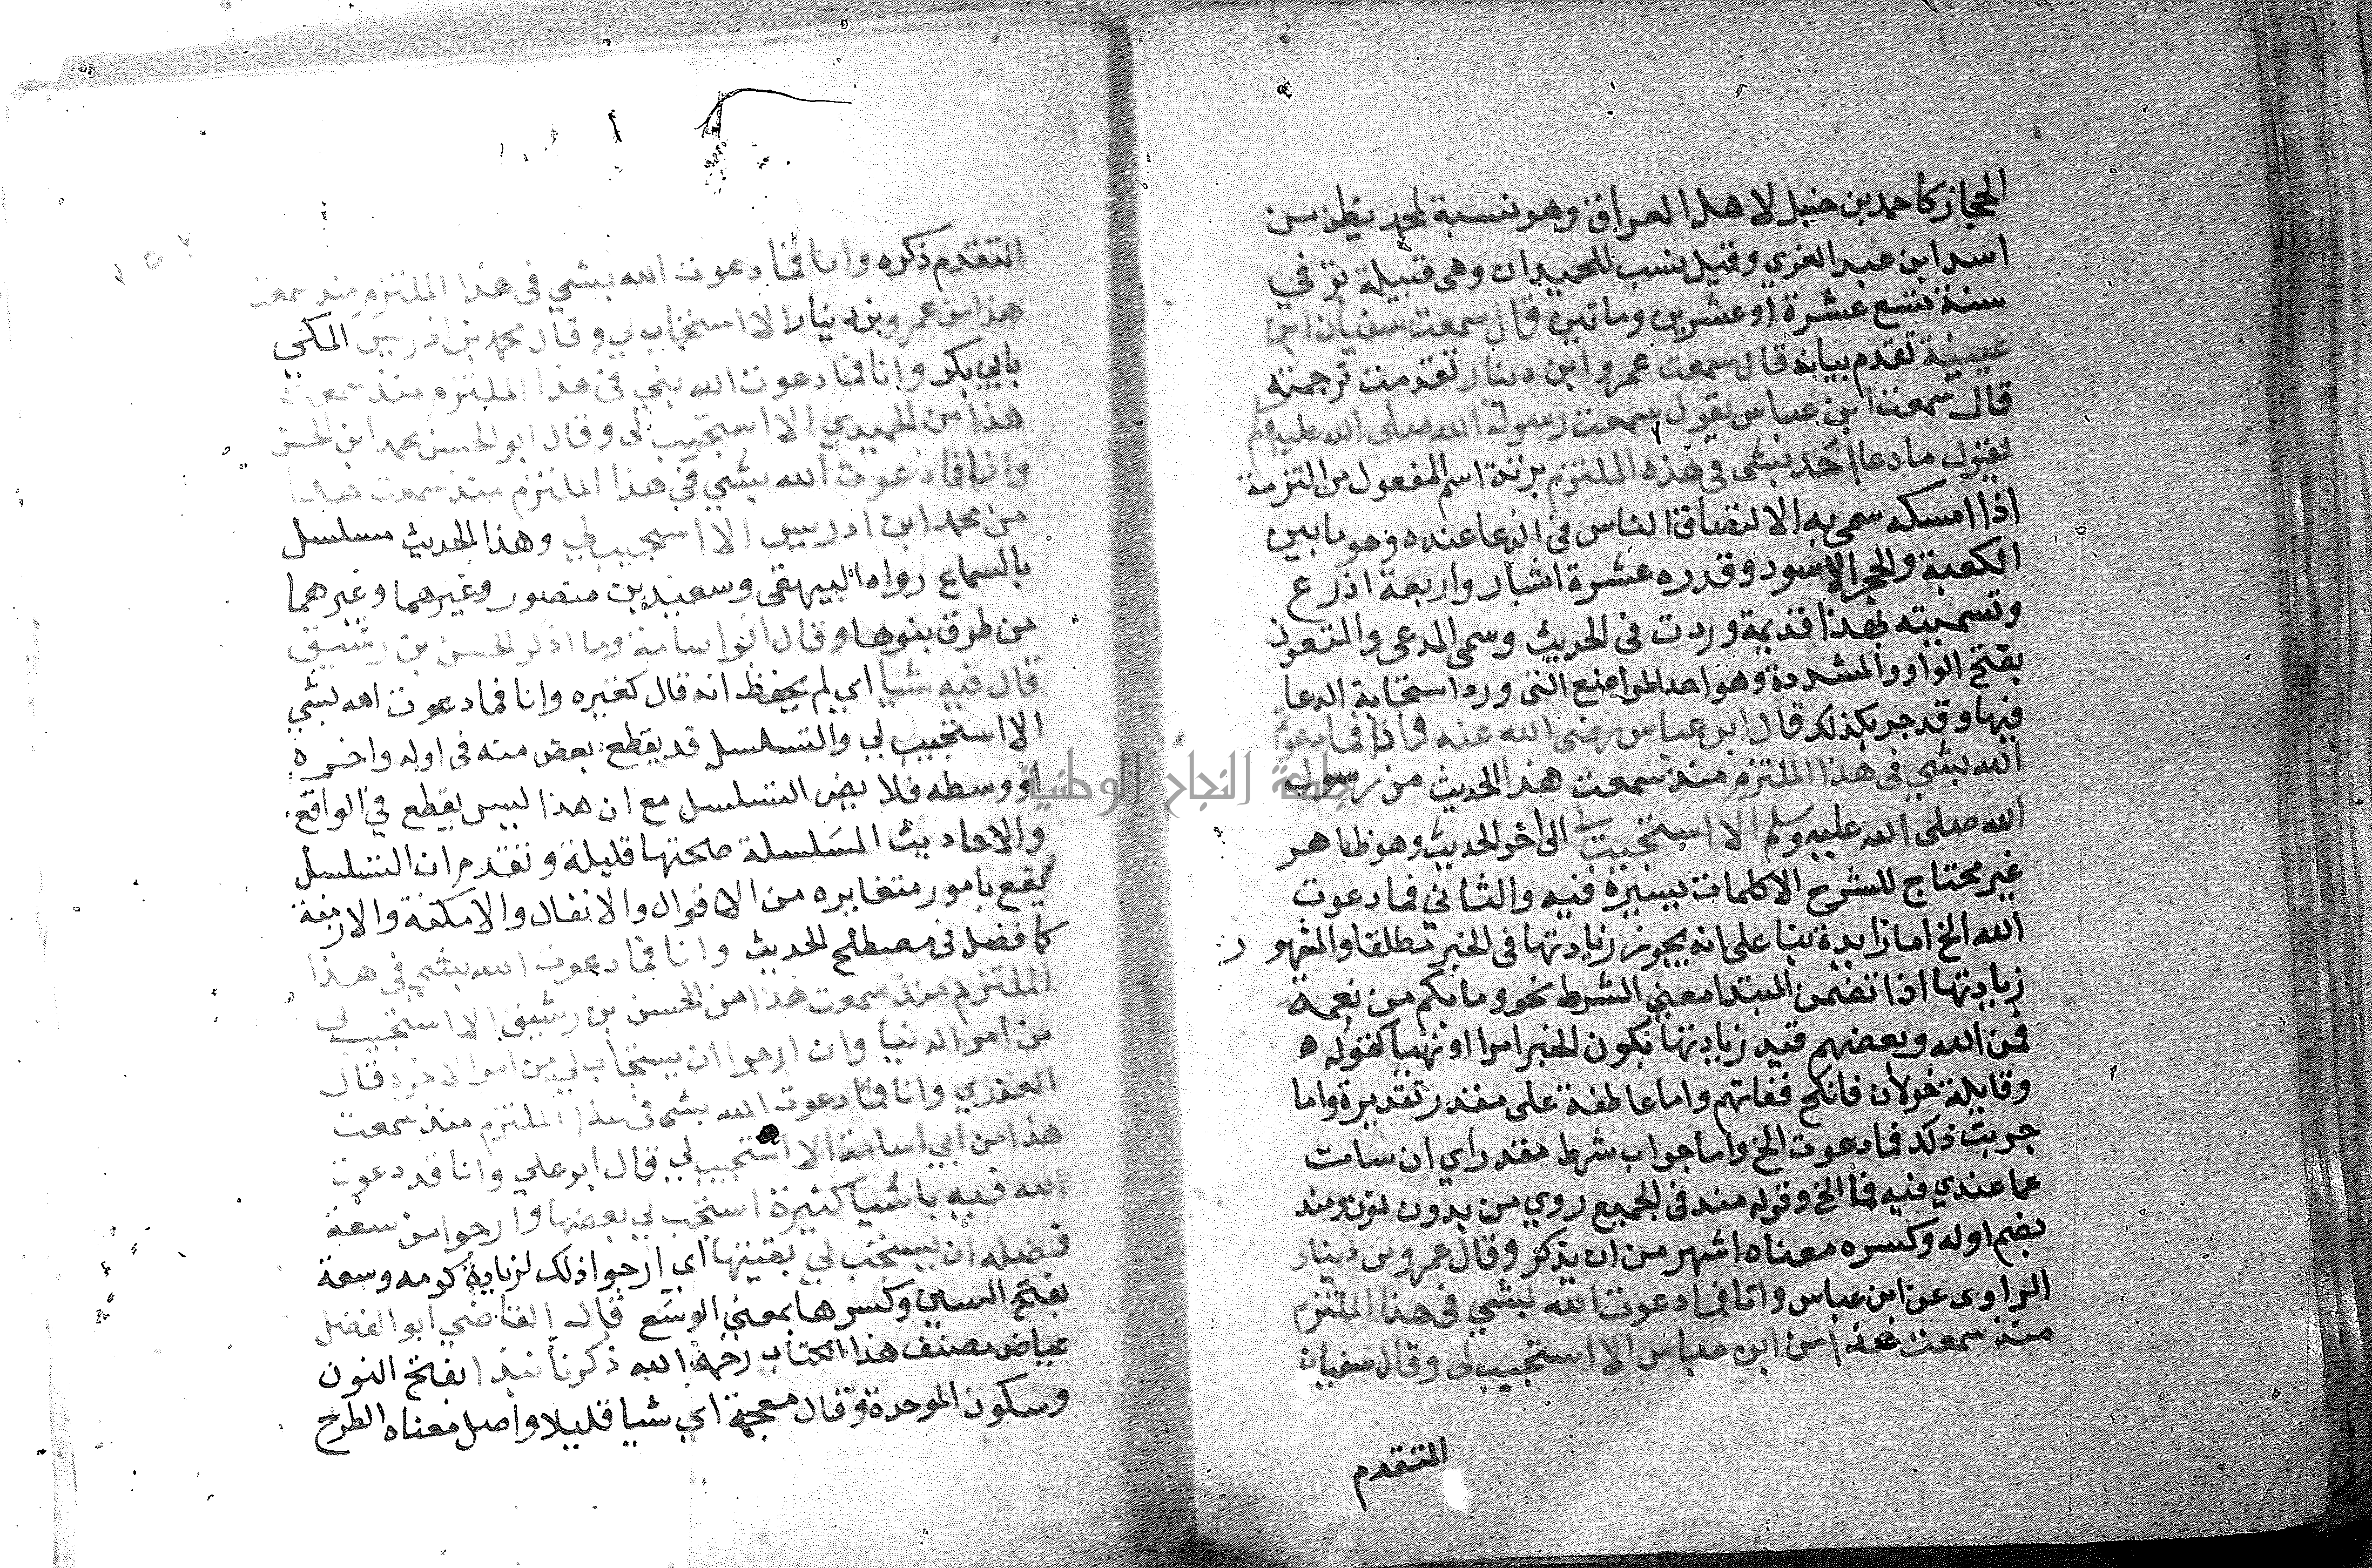 الحجاز كاحمد بن حنبل لا هل العراق وهو نسبة لحميد بطن من
اسد ابن عبد العزي وقيل ينسب للحميدان وهي قبيلة توفي
سنة تسع عشرة او عشرين وماتين قال سمعت سفيان ابن
عيينة تقدم بيانه قال سمعت عمرو ابن دينار تقدمت ترجمته
قال سمعت ابن عباس يقول سمعت رسول الله صلى الله عليه وسلم
يقول ما دعا احد بشي في هذه الملتزم بزنة اسم المفعول من التزمه
اذا امسكه سمي به الالتصاق الناس في الدعا عنده وهو ما بين
الكعبة والحجر الاسود وقدره عشرة اشبار واربعة اذرع
وتسميته بهذا قديمة وردت في الحديث وسمى المدعى والمتعوذ
بفتح الواو والمشددة وهو احد المواضع التي ورد استجابة الدعا
فيها وقد جرب كذلك قال ابن عباس رضي الله عنه فما دعوت
الله بشي في هذا الملتزم منذ سمعت هذا الحديث من رسول
الله صلى الله عليه وسلم الا استجيب لي الى اخر الحديث وهو ظاهر
غير محتاج للشرح الا كلمات يسيرة فيه والثاني فما دعوت
الله الخ اما زايدة بنا على انه يجوز زيادتها في الخبر مطلقا والمشهور
زيادتها اذا تضمن المبتدا معني الشرط نحو وما بكم من نعمة
فمن الله وبعضهم قيد زيادتها بكون الخبر امرا او نهيا كقوله
وقايلة خولان فانكح فتاتهم واما عاطفة على مقدر تقديره واما
جربت ذلك فما دعوت الخ واما جواب شرط مقدر اي ان سالت
عما عندي فيه فما الخ وقوله منذ في الجميع روي من بدون نون ومنذ
بضم اوله وكسره معناه اشهر من ان يذكر وقال عمرو بن دينار
الراوى عن ابن عباس وانا فما دعوت الله بشي في هذا الملتزم
منذ سمعت هذا من ابن عباس الا استجيب لي وقال سفيان
المتقدم
المتقدم ذكره وانا فما دعوت الله بشي في هذا الملتزم منذ سمعت
هذا من عمرو بن دينار الا استجاب لي وقال محمد بن ادريس المكي
بابي بكر وانا فما دعوت الله بشي في هذا الملتزم منذ سمعت
هذا من الحميدي الا استجيب لي وقال ابو الحسن محمد ابن الحسن
وانا فما دعوت الله بشي في هذا الملتزم منذ سمعت هذا
من محمد ابن ادريس الا استجيب لي وهذا الحديث مسلسل
بالسماع رواه البيهقي وسعيد بن منصور وغيرهما وغيرهما
من طرق بنوها وقال ابو اسامة وما اذكر الحسن بن رشيق
قال فيه شيا اي لم يحفظ انه قال كغيره وانا فما دعوت الله بشي
الا استجيب لي والتسلسل قد يقطع بعض منه في اوله واخره
او وسطه فلا يضر التسلسل مع ان هذا ليس يقطع في الواقع
والاحاديث المسلسلة صحتها قليلة وتقدم ان التسلسل
يقع بامور متغايره من الاقوال والافعال والامكنة والازمنة
كما فصل في مصطلح الحديث وانا فما دعوت الله بشي في هذا
الملتزم منذ سمعت هذا من الحسن بن رشيق الا استجيب لي
من امر الدنيا وان ارجوا ان يستجاب لي من امر الاخرة قال
العذري وانا فما دعوت الله بشى في هذا الملتزم منذ سمعت
هذا من ابي اسامة الا استجيب لي قال ابو علي وانا قد دعوت
الله فيه باشيا كثيرة استجب لي بعضها وارجوا من سعة
فضله ان يستجب لي بقيتها اي ارجوا ذلك لزيادة كرمه وسعة
بفتح السين وكسرها بمعني الوسع قال القاضي ابو الفضل
عياض مصنف هذا الكتاب رحمه الله ذكرنا نبذا بفتح النون
وسكون الموحدة وقال معجمة اي شيا قليلا واصل معناه الطرح
جامعة النجاح الوطنية